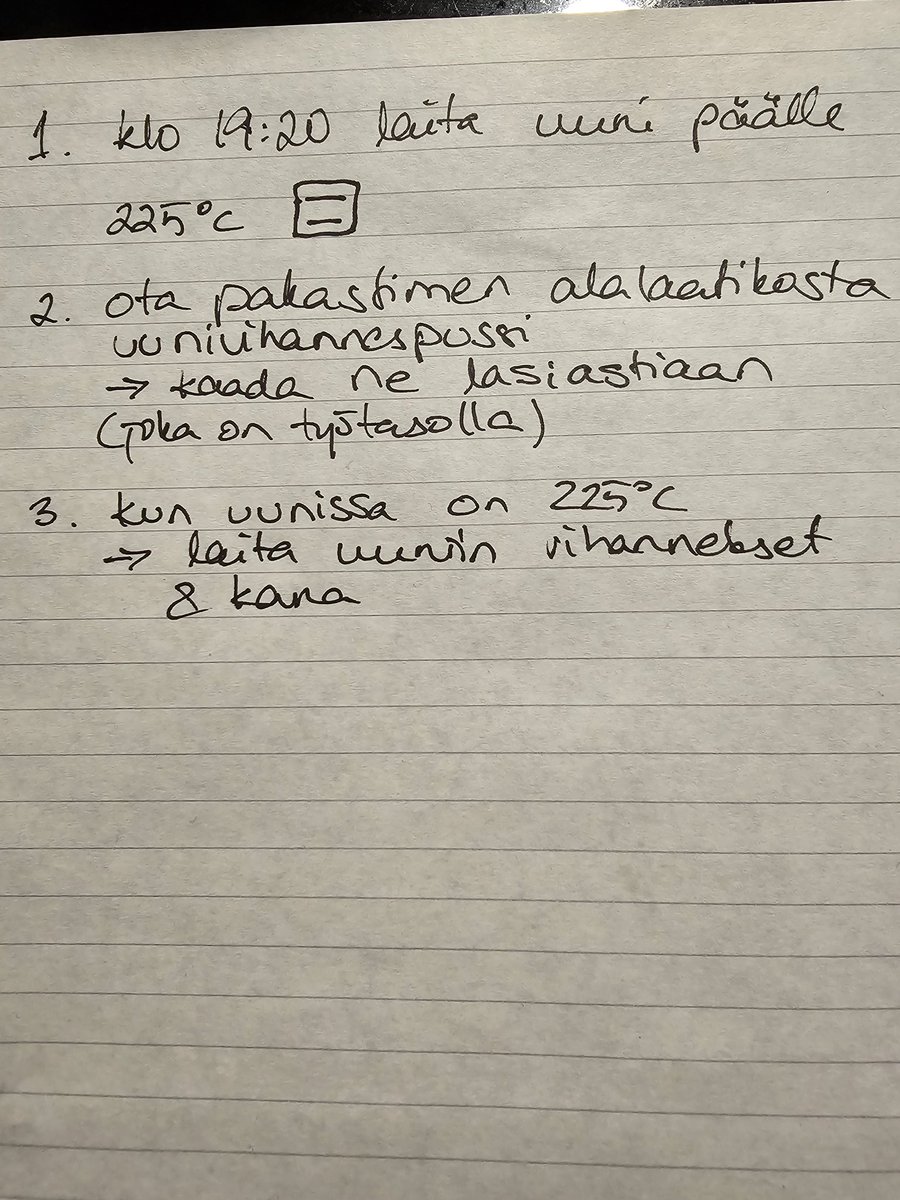 1. klo 19:20 laita uuni päälle
225°C
2. ota pakastimen alalaatikosta
uunivihannespussi
→ kaada ne lasiastiaan
(joka on työtasolla)
3. kun uunissa on 225°C
→ laita uuniin vihannekset
& kana